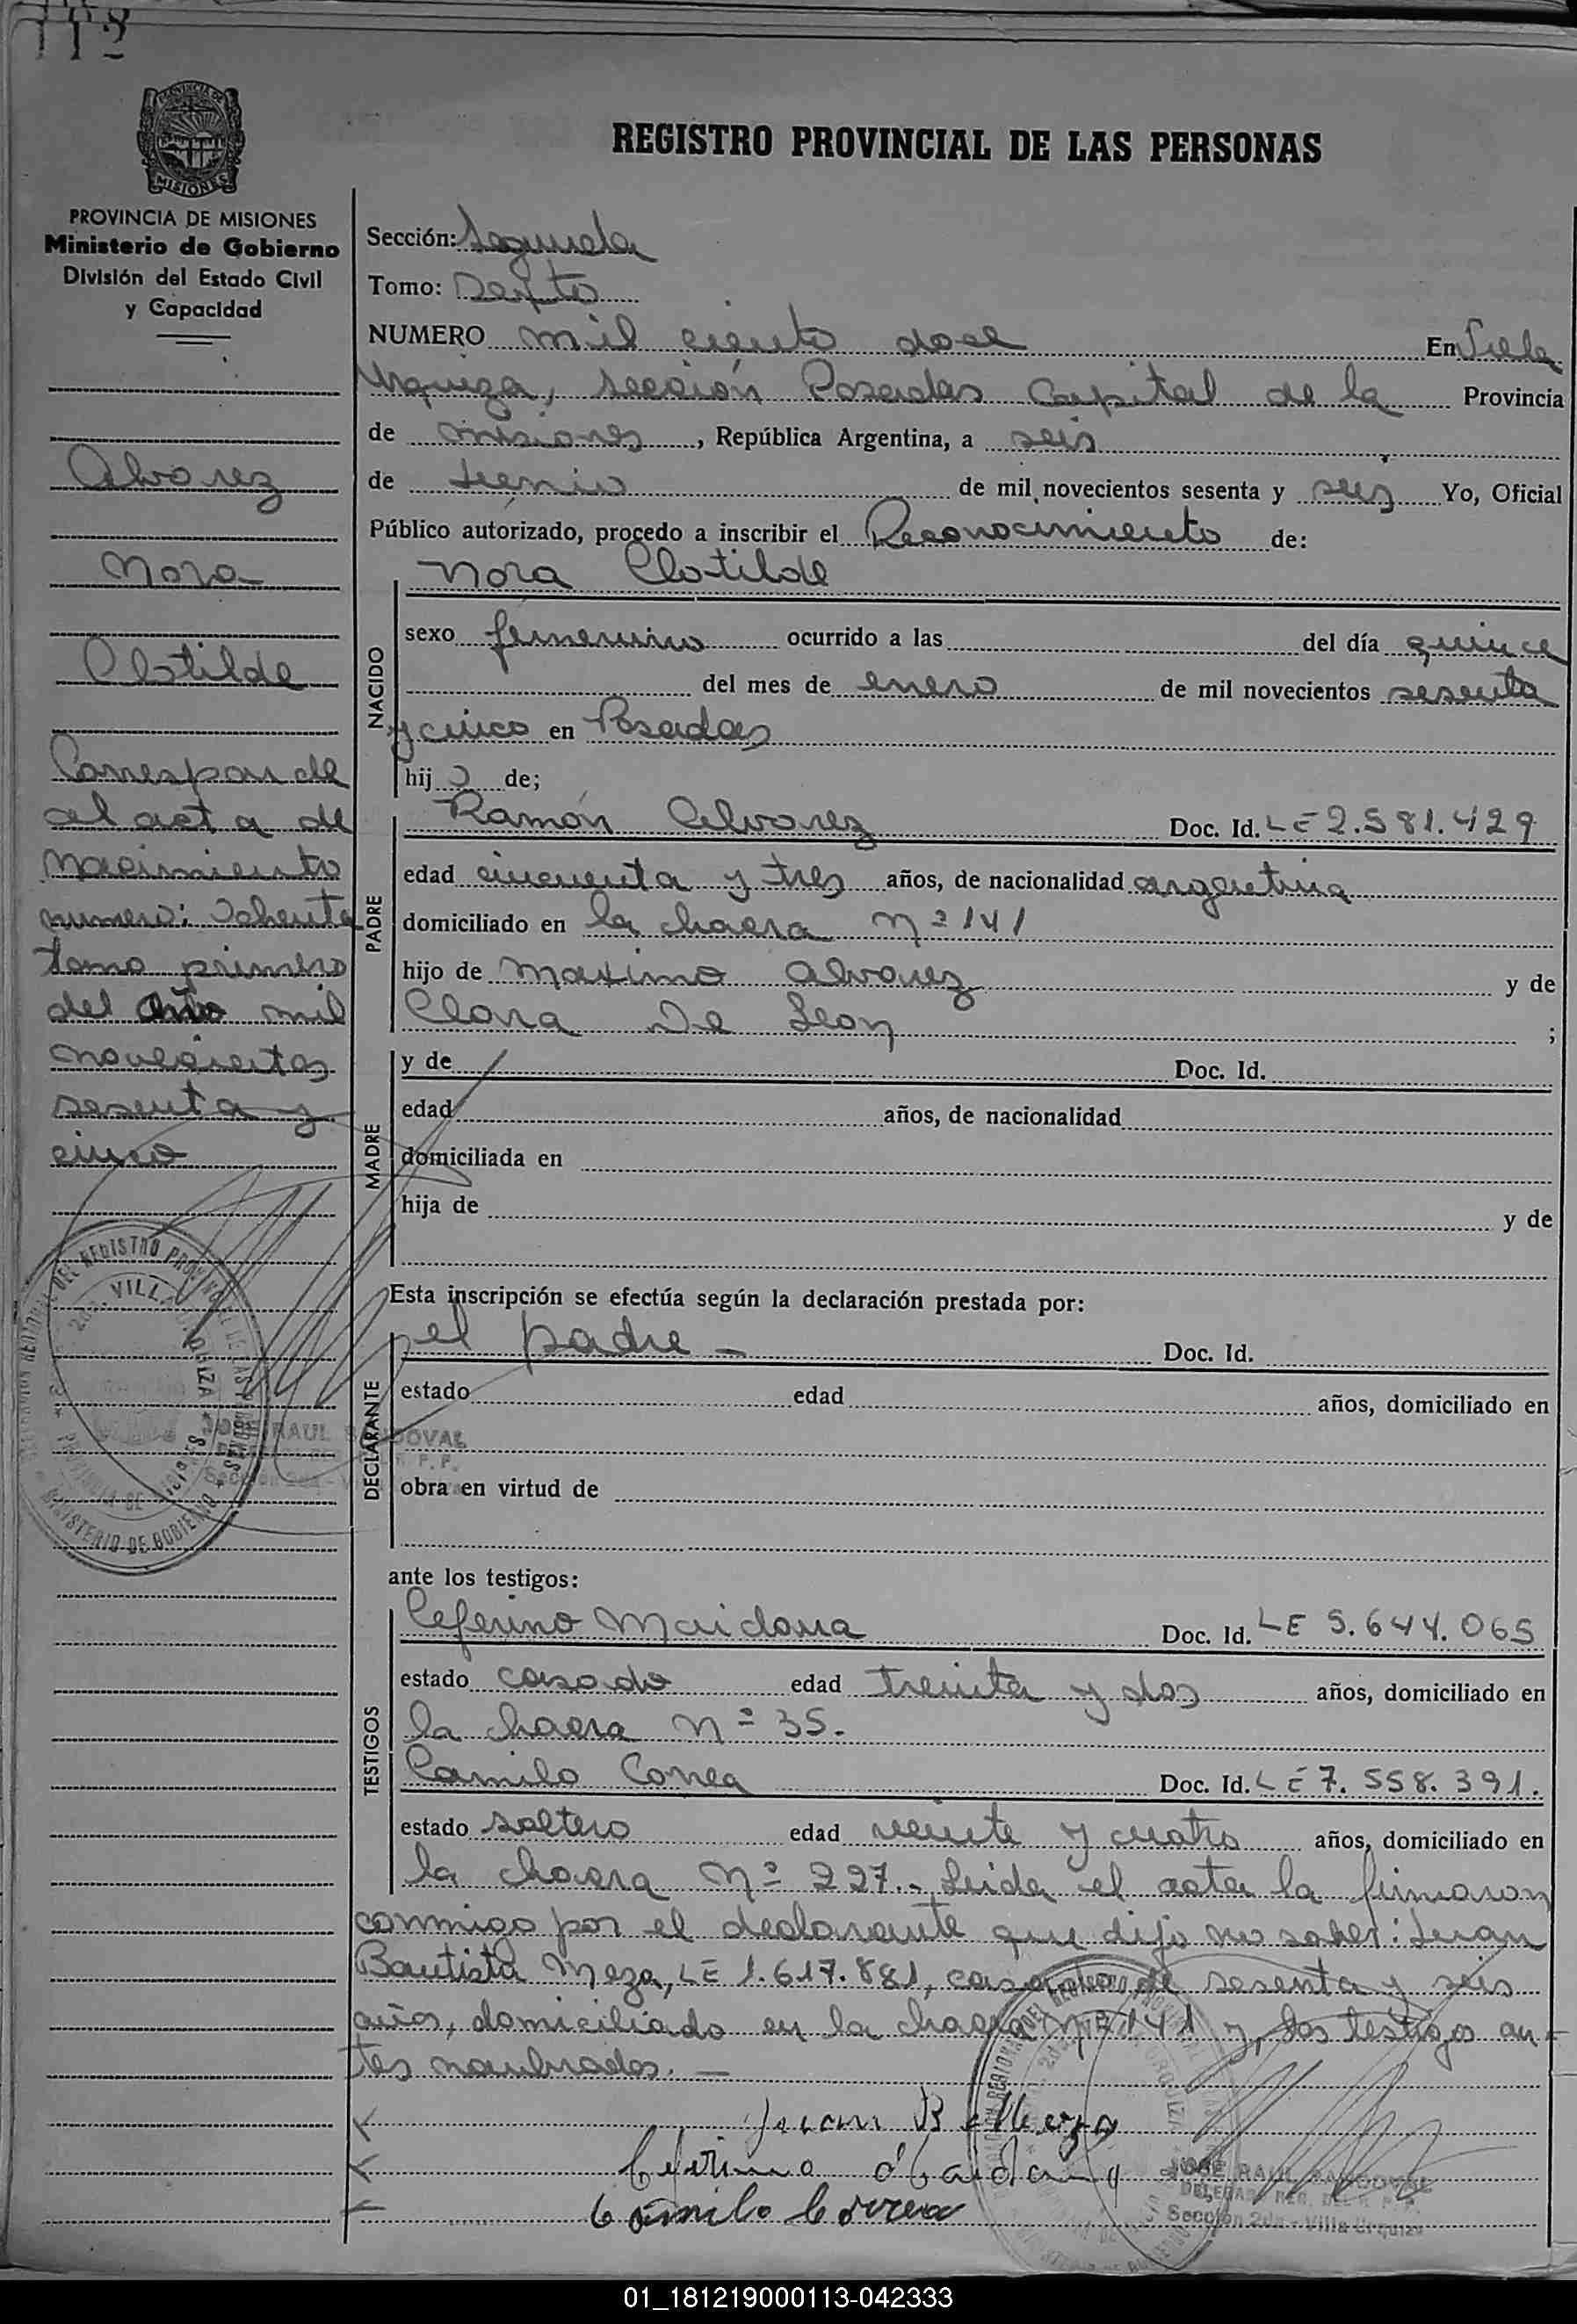 112
PROVINCIA DE MISIONES
PROVINCIA DE MISIONES
Ministerio de Gobierno
División del Estado Civil
y Capacidad
Alvarez
Nora
Clotilde
Corresponde
al acta de
nacimiento
numero: Ochenta
tomo primero
del Año mil
novecientos
sesenta y
cinco
REGISTRO PROVINCIAL DE LAS PERSONAS
Sección: Segunda
Tomo: Sexto
NUMERO mil ciento doce En Villa
Urquiza, sección Posadas Capital de la Provincia
de Misiones, República Argentina, a seis
de Junio de mil novecientos sesenta y seis Yo, Oficial
Público autorizado, procedo a inscribir el Reconocimiento de:
NACIDO
Nora Clotilde
sexo femenino ocurrido a las del día quince
del mes de enero de mil novecientos sesenta
y cinco en Posadas
hij a de;
PADRE
Ramón Alvarez Doc. Id. LE 2.581.429
edad cincuenta y tres años, de nacionalidad argentina
domiciliado en la chacra Nº 141
hijo de Maximo Alvarez y de
Clara De Leon ;
MADRE
y de Doc. Id.
edad años, de nacionalidad
domiciliada en
hija de y de
Esta inscripción se efectúa según la declaración prestada por:
DECLARANTE
el padre - Doc. Id.
estado edad años, domiciliado en
obra en virtud de
ante los testigos:
TESTIGOS
Ceferino Maidana Doc. Id. LE 5.644.065
estado casado edad treinta y dos años, domiciliado en
la chacra Nº 35.
Camilo Correa Doc. Id. LE 7.558.391.
estado soltero edad veinte y cuatro años, domiciliado en
la chacra Nº 227.- Leida el acta la firmaron
conmigo por el declarante que dijo no saber: Juan
Bautista Meza, LE 1.617.881, casado de sesenta y seis
años, domiciliado en la chacra Nº 141 y, los testigos an-
tes nombrados. -
Juan B Meza
Ceferino Maidana
Camilo Correa
JOSE RAUL SANDOVAL
Sección 2da - Villa Urquiza
01_181219000113-042333